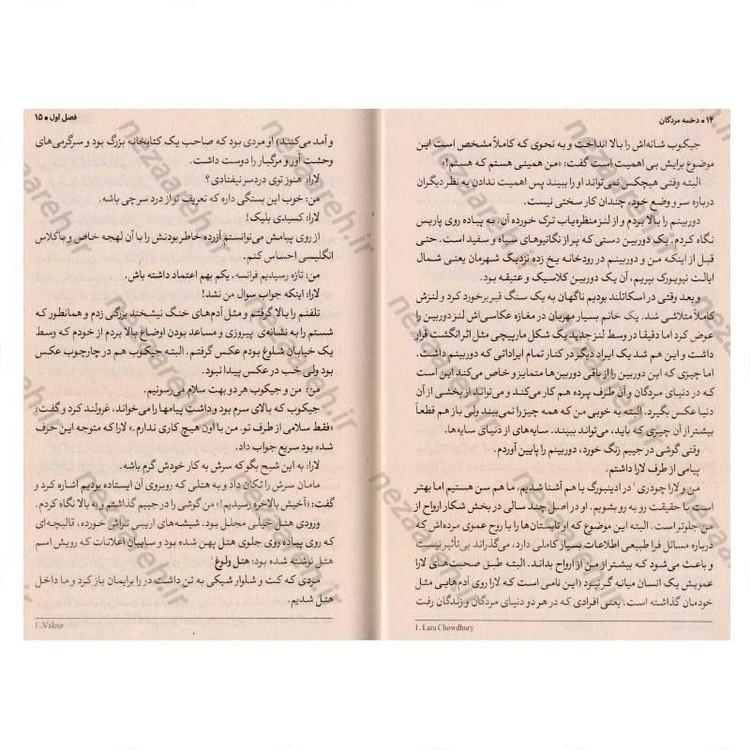 ۱۴ • دخمه مردگان
جیکوب شانه‌اش را بالا انداخت و به نحوی که کاملاً مشخص است این
موضوع برایش بی اهمیت است گفت: «من همینی هستم که هستم!»
البته وقتی هیچکس نمی‌تواند او را ببیند پس اهمیت ندادن به نظر دیگران
درباره سر و وضع خود، چندان کار سختی نیست.
دوربینم را بالا بردم و از لنز منظره‌یاب ترک خورده آن، به پیاده روی پاریس
نگاه کردم. یک دوربین دستی که پر از نگاتیوهای سیاه و سفید است. حتی
قبل از اینکه من و دوربینم در رودخانه یخ زده نزدیک شهرمان یعنی شمال
ایالت نیویورک بپریم، آن یک دوربین کلاسیک و عتیقه بود.
و بعد وقتی در اسکاتلند بودیم ناگهان به یک سنگ قبر برخورد کرد و لنزش
کاملاً متلاشی شد. یک خانم بسیار مهربان در مغازه عکاسی‌اش لنز دوربین را
عوض کرد اما دقیقا در وسط لنز جدید یک شکل مارپیچی مثل اثر انگشت قرار
داشت و این هم شد یک ایراد دیگر در کنار تمام ایراداتی که دوربینم داشت.
اما چیزی که این دوربین را از باقی دوربین‌ها متمایز و خاص می‌کند این است
که در دنیای مردگان و آن طرف پرده هم کار می‌کند و می‌تواند از بخشی از آن
دنیا عکس بگیرد. البته به خوبی من که همه چیز را نمی‌بیند ولی باز هم قطعاً
بیشتر از آن چیزی که باید، می‌تواند ببیند. سایه‌های از دنیای سایه‌ها.
وقتی گوشی در جیبم زنگ خورد، دوربینم را پایین آوردم.
پیامی از طرف لارا داشتم.
من و لارا چودری ۱ در ادینبورگ با هم آشنا شدیم. ما هم سن هستیم اما بهتر
است با حقیقت رو به رو بشویم. او در اصل چند سالی در بخش شکار ارواح از
من جلوتر است. البته این موضوع که او تابستان‌ها را با روح عموی مرده‌اش که
درباره مسائل فرا طبیعی اطلاعات بسیار کاملی دارد، می‌گذراند بی‌تأثیر نیست
و باعث می‌شود که بیشتر از من از ارواح بداند. البته طبق صحبت‌های لارا
عمویش یک انسان میانه گر نبود (این نامی است که لارا روی آدم‌هایی مثل
خودمان گذاشته است. یعنی افرادی که در هر دو دنیای مردگان و زندگان رفت
1. Lara Chowdhury
فصل اول • ۱۵
و آمد می‌کنند) او مردی بود که صاحب یک کتابخانه بزرگ بود و سرگرمی‌های
وحشت آور و مرگبار را دوست داشت.
لارا: هنوز توی دردسر نیفتادی؟
من: خوب این بستگی داره که تعریف تو از درد سر چی باشه.
لارا: کسیدی بلیک!
از روی پیامش می‌توانستم آزرده خاطر بودنش را با آن لهجه خاص و باکلاس
انگلیسی احساس کنم.
من: تازه رسیدیم فرانسه. یکم بهم اعتماد داشته باش.
لارا: اینکه جواب سوال من نشد!
تلفنم را بالا گرفتم و مثل آدم‌های خنگ نیشخند بزرگی زدم و همانطور که
شستم را به نشانه‌ی پیروزی و مساعد بودن اوضاع بالا بردم از خودم که وسط
یک خیابان شلوغ بودم عکس گرفتم. البته جیکوب هم در چارچوب عکس
بود ولی خب در عکس پیدا نبود.
من: من و جیکوب هر دو بهت سلام می‌رسونیم.
جیکوب که بالای سرم بود و داشت پیامها را می‌خواند، غرولند کرد و گفت:
«فقط سلامی از طرف تو. من با اون هیچ کاری ندارم.» لارا که متوجه این حرف
شده بود سریع جواب داد.
لارا: به این شبح بگو که سرش به کار خودش گرم باشه.
مامان سرش را تکان داد و به هتلی که روبروی آن ایستاده بودیم اشاره کرد و
گفت: «آخیش بالاخره رسیدیم!» من گوشی را در جیبم گذاشتم و به بالا نگاه کردم.
ورودی هتل خیلی مجلل بود. شیشه‌های اریبی تراش خورده، قالیچه‌ای
که روی پیاده روی جلوی هتل پهن شده بود و سایبان اعلانات که رویش اسم
هتل نوشته شده بود: هتل ولوغ ۱
مردی که کت و شلوار شیکی به تن داشت در را برایمان باز کرد و ما داخل
هتل شدیم.
1. Valeur
nezaareh.ir